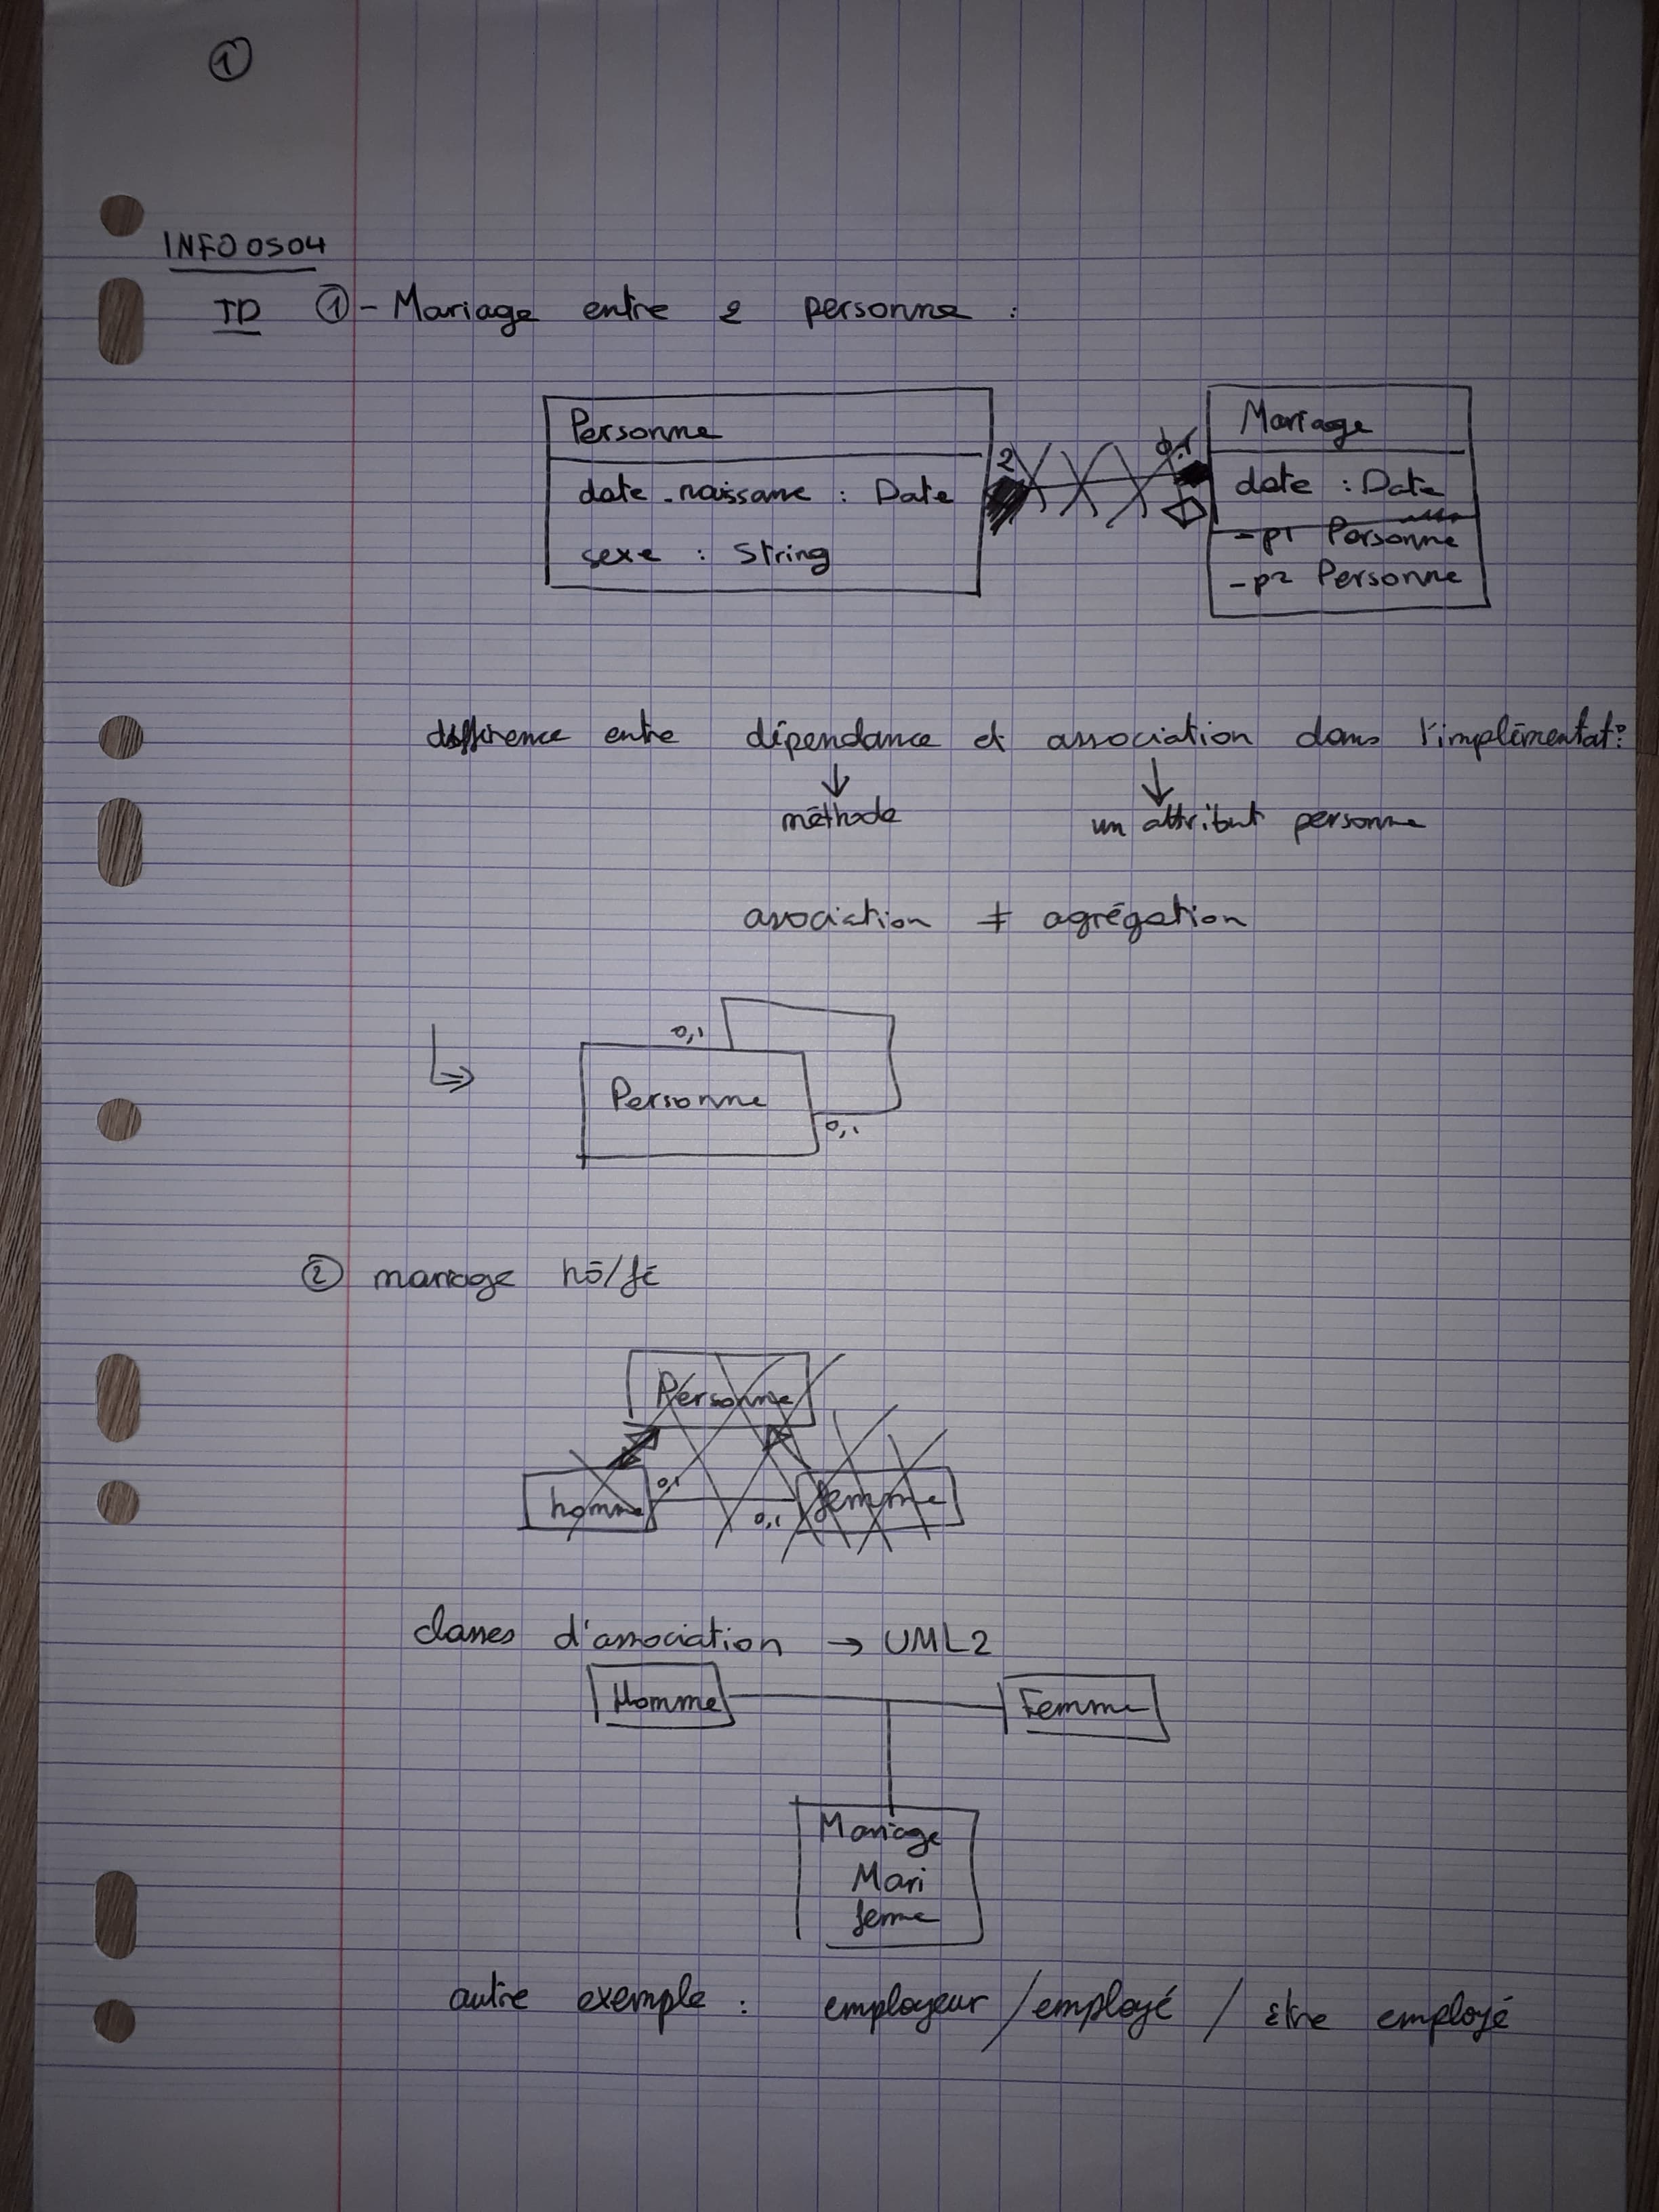 1
INFO0504
TD ① - Mariage entre 2 personne :
Personne
date_naissance : Date
sexe : String
2
0,1
Mariage
date : Date
- p1 Personne
- p2 Personne
différence entre dépendance et association dans l'implémentat°
↓ ↓
méthode un attribut personne
association ≠ agrégation
0,1
Personne
0,1
② mariage hō/fē
Personne
homme 0,1
0,1 femme
classes d'association → UML2
Homme Femme
Mariage
Mari
femme
autre exemple : employeur / employé / être employé